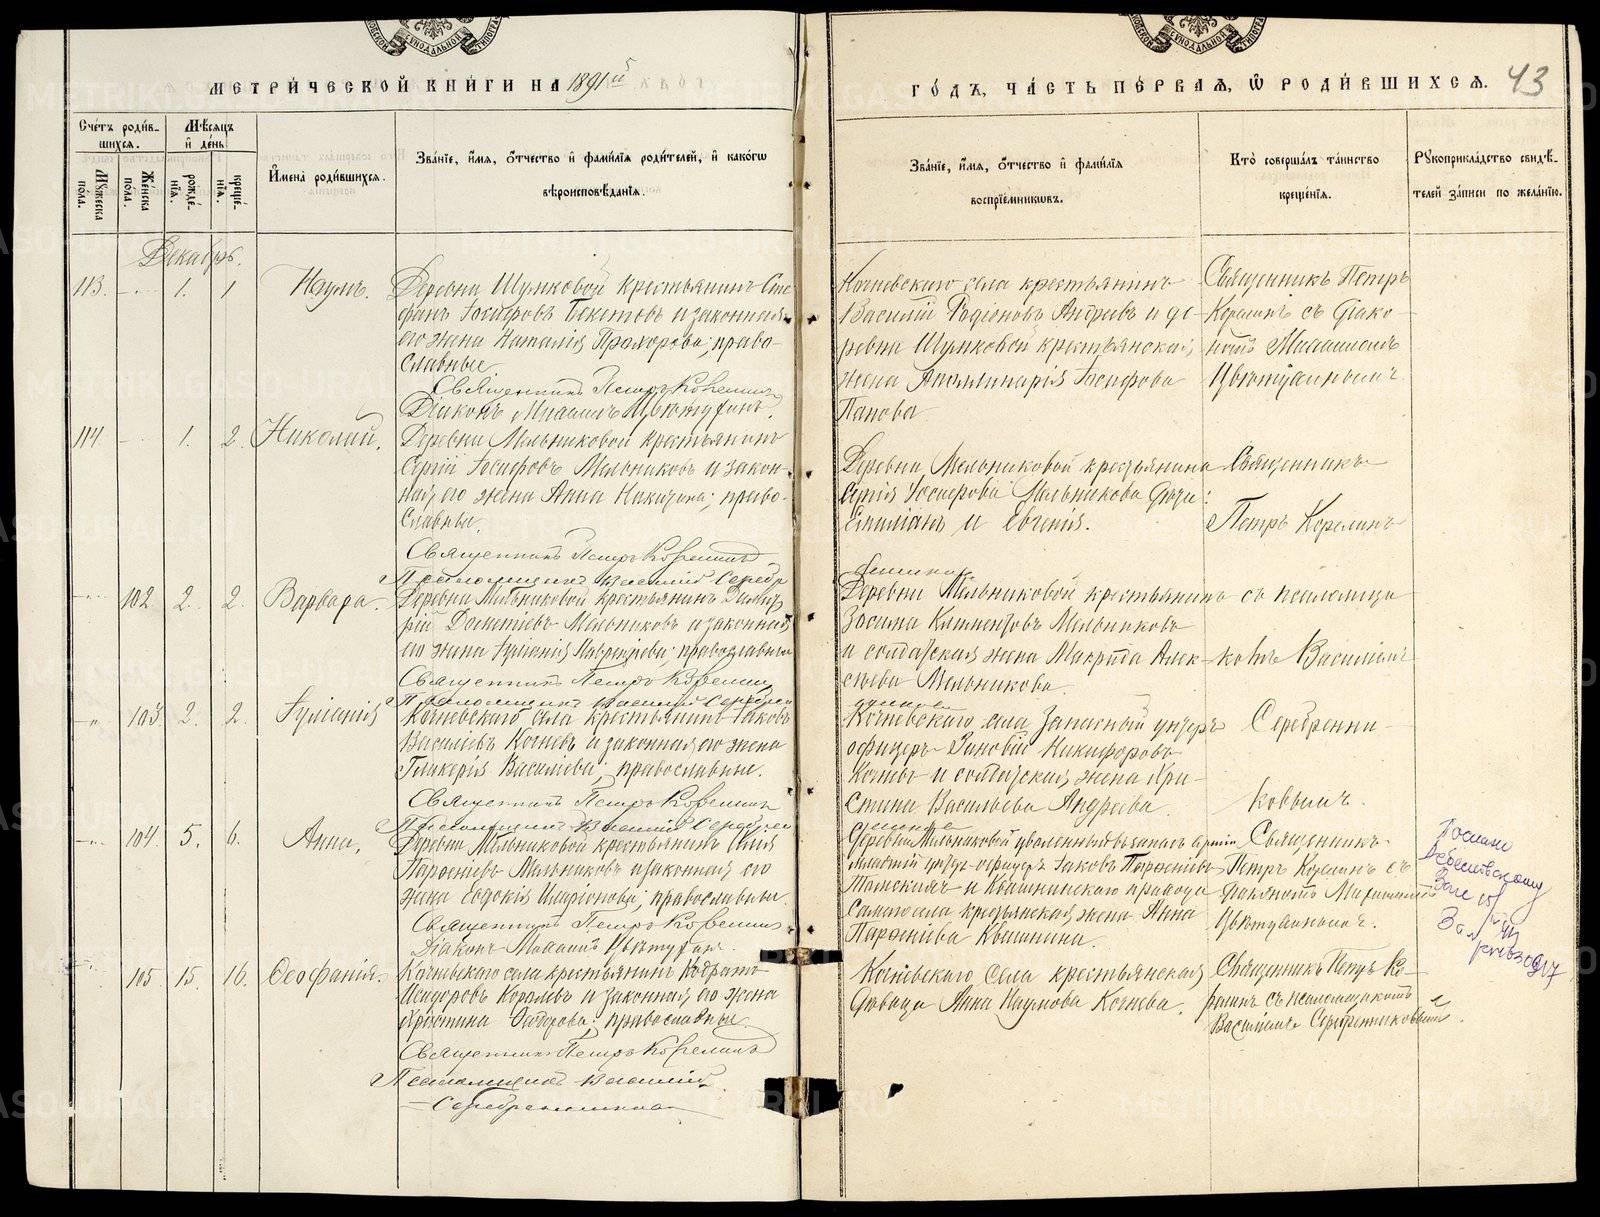 МЕТРИ́ЧЕСКОЙ КНИ́ГИ НА 1891й
ГО́ДЪ, ЧА́СТЬ ПЕ́РВАЯ, Ѡ РОДИ́ВШИХСЯ. 43
Сче́тъ роди́в-
шихся.
Мѣ́сяцъ
и҆ де́нь
Мꙋ́жеска
по́ла.
Же́нска
по́ла.
рожде́-
нїя.
креще́-
нїя.
И҆мена̀ роди́вшихся.
Зва́нїе, и҆́мя, ѻ҆́тчество и҆ фами́лїя роди́телей, и҆ како́гѡ
вѣроисповѣ́данїя.
Зва́нїе, и҆́мя, ѻ҆́тчество и҆ фами́лїя
воспрїе́мникѡвъ.
Кто̀ соверша́лъ та́инство
креще́нїя.
Рꙋкоприкла́дство свидѣ́-
телей за́писи по жела́нїю.
Декабрь.
113. 1. 1 Наумъ.
Деревни Шуликовой крестьянинъ Сте
фанъ Іосифовъ Бекетовъ и законная
его жена Наталія Прохорова; право-
славные
Священникъ Петръ Корелинъ
Діаконъ
Кочневскаго села крестьянинъ
Василій Родіоновъ и де-
ревни крестьянская
жена Аполлинарія Іосифова
Попова
Священникъ Петръ
Корелинъ съ діако-
номъ
114. 1. 2. Николай.
Деревни Мельниковой крестьянинъ
Сергій Іосифовъ Мельниковъ и закон-
ная его жена Анна Никитина; право-
славные.
Священникъ Петръ Корелинъ
Псаломщикъ Василій
Деревни Мельниковой крестьянина
Сергія Іосифова Мельникова дѣти:
Емиліанъ и Евгенія.
Священникъ
Петръ Корелинъ
102. 2. 2. Варвара.
Деревни Мельниковой крестьянинъ Димит
рій Дометіевъ Мельниковъ и законная
его жена Іуліанія Лаврентіева; православные
Священникъ Петръ Корелинъ
Псаломщикъ Василій
Деревни Мельниковой крестьянинъ
Зосима Климентовъ Мельниковъ
и солдатская жена Алек-
сѣева Мельникова.
съ псаломщи
комъ Василіемъ
103 2. 2. Іуліанія
Кочневскаго села крестьянинъ Іаковъ
Василіевъ Кочневъ и законная его жена
Гликерія Василіева; православные.
Священникъ Петръ Корелинъ
Псаломщикъ Василій
Кочневскаго села запасный унтеръ
офицеръ Зиновій Никифоровъ
Кочневъ и солдатская жена Хри-
стина Васильева Андреева.
Серебренни-
ковымъ.
104. 5. 6. Анна.
Деревни Мельниковой крестьянинъ Илія
Парѳеніевъ Мельниковъ и законная его
жена Евдокія Иларіонова; православные.
Священникъ Петръ Корелинъ
Діаконъ
Деревни Мельниковой уволенный въ запасъ арміи
младшій унтеръ-офицеръ Іаковъ Парѳеніевъ
и Квашнинскаго прихода
самаго села крестьянская жена Анна
Парѳеніева Квашнина.
Священникъ
Петръ Корелинъ съ
105. 15. 16. Ѳеофанія.
Кочневскаго села крестьянинъ Кодратъ
Исидоровъ Королевъ и законная его жена
Христина Ѳеодорова; православные.
Священникъ Петръ Корелинъ
Псаломщикъ Василій
Серебренниковъ
Кочневскаго села крестьянская
дѣвица Анна Наумова Кочнева.
Священникъ Петръ Ко-
релинъ съ псаломщикомъ
Василіемъ Серебренниковымъ.